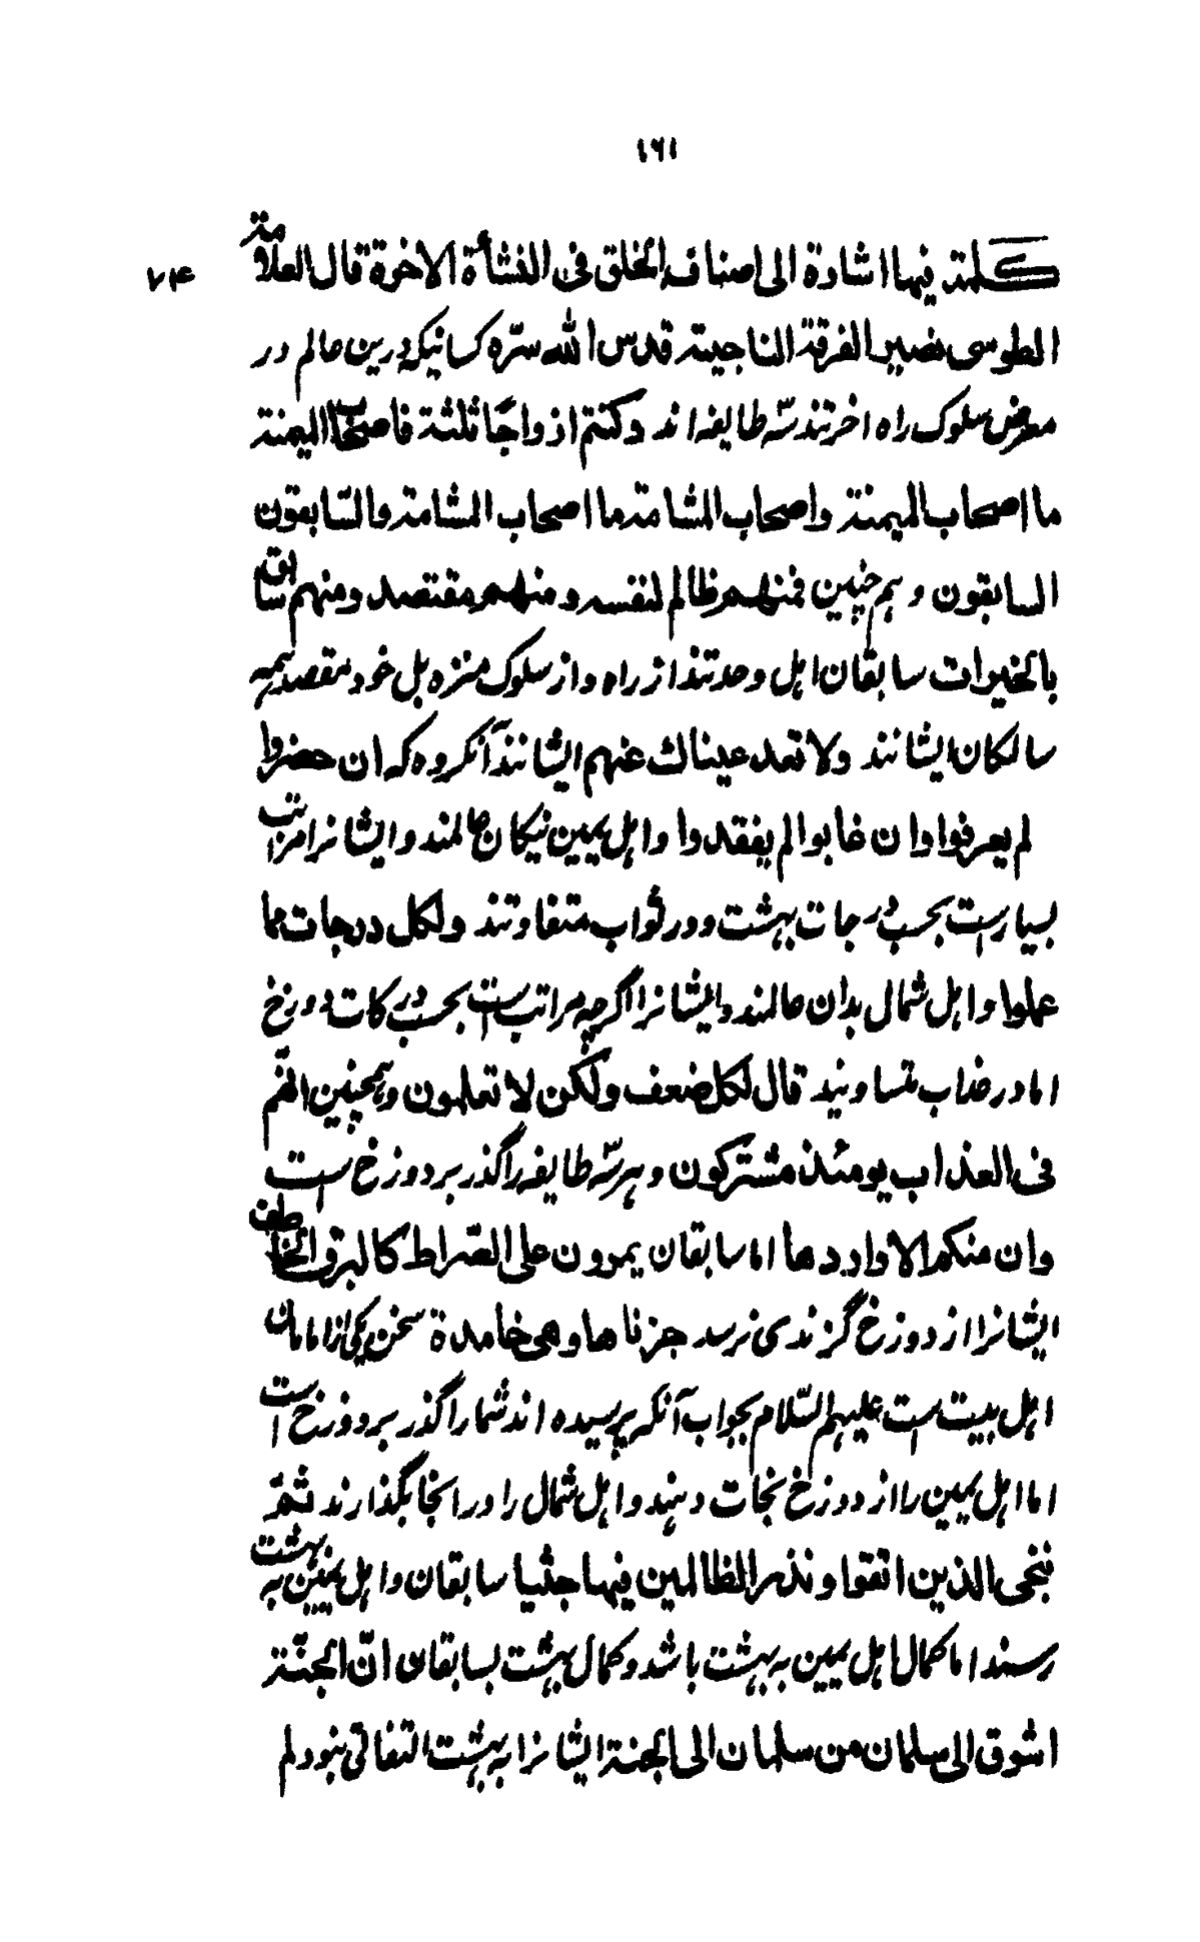 ۱۶۱
۷۴
كلمة فيها اشارة الى اصناف الخلق فى النشأة الاخرة قال العلامة
الطوسى نصير الفرقة الناجية قدس الله سرّه کسانیکه درین عالم در
معرض سلوک راه اخرتند سّه طایفه اند وكنتم ازواجًا ثلثة فاصحاب الميمنة
ما اصحاب الميمنة واصحاب المشامة ما اصحاب المشامة والسّابقون
السابقون و هم چنین فمنهم ظالم لنفسه و منهم مقتصد ومنهم سابق
بالخيرات سابقان اهل وحدتند از راه و از سلوک منزه بل خود مقصد همه
سالکان ایشانند ولا تعد عيناك عنهم ایشانند آنگروه که ان حضروا
لم يعرفوا وان غابوا لم يفقدوا و اهل یمین نیکان عالمند و ایشانرا مراتب
بسیارست بحسب درجات بهشت و در ثواب متفاوتند ولكل درجات مما
عملوا و اهل شمال بدان عالمند و ایشانرا اگرچه مراتب ست بحسب درکات دوزخ
اما در عذاب متساویند قال لكل ضعف ولكن لا تعلمون و همچنین انهم
فى العذاب يومئذ مشتركون و هر سّه طایفه را گذر بر دوزخ است
وان منكم الا واردها اما سابقان يمرون على الصّراط كالبرق الخاطف
ایشانرا از دوزخ گزندی نرسد جزناها وهى خامدة سخن یکی از امامان
اهل بیت ست علیهم السّلام بجواب آنکه پرسیده اند شما را گذر بر دوزخ است
اما اهل یمین را از دوزخ نجات دهند و اهل شمال را در انجا بگذارند ثمّ
ننجى الذين اتقوا و نذر الظالمين فيها جثيا سابقان و اهل یمین به بهشت
رسند اما کمال اهل یمین به بهشت باشد و کمال بهشت بسابقان انّ الجنّة
اشوق الى سلمان من سلمان الى الجنة ایشانرا به بهشت التفاتی نبود لم